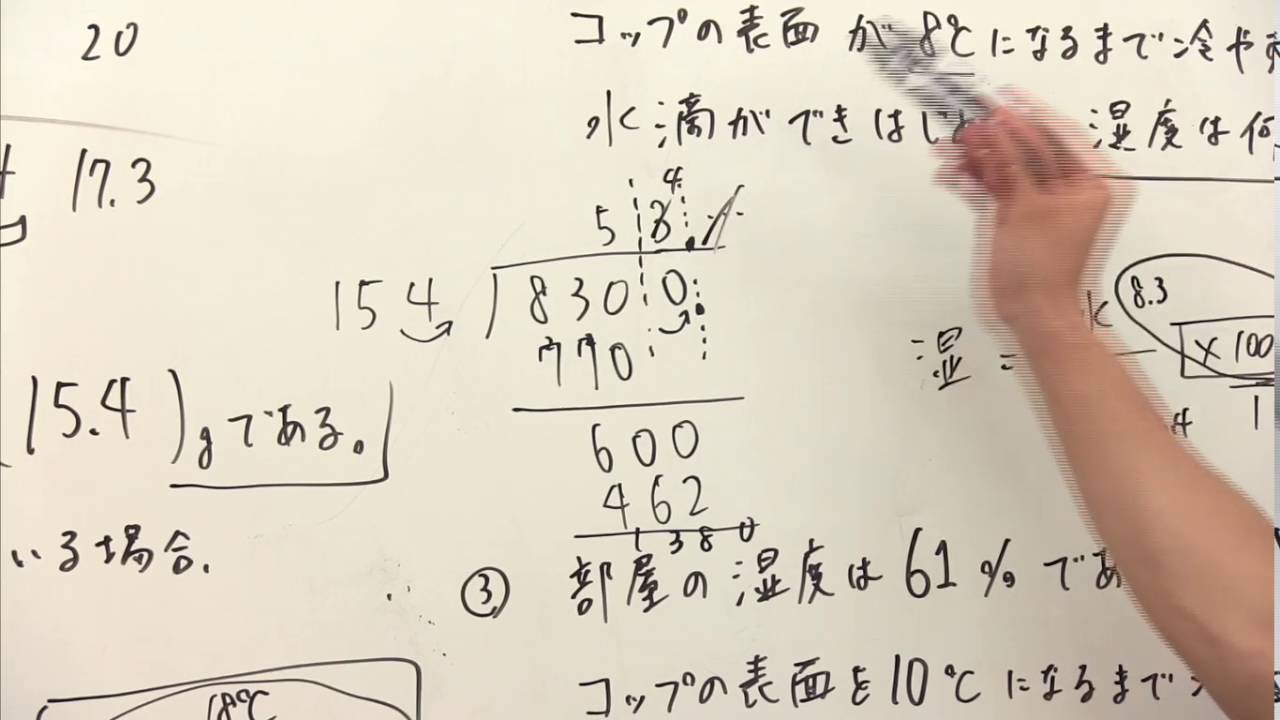 20
17.3
15.4 ) gである。
いる場合.
18℃
コップの表面が8℃になるまで冷や
水滴ができはじ
湿度は何
4
5 8.
154 ) 8300
770
600
462
1380
湿 =
8.3
× 100
1
③ 部屋の湿度は 61 % であ
コップの表面を10℃になるまで